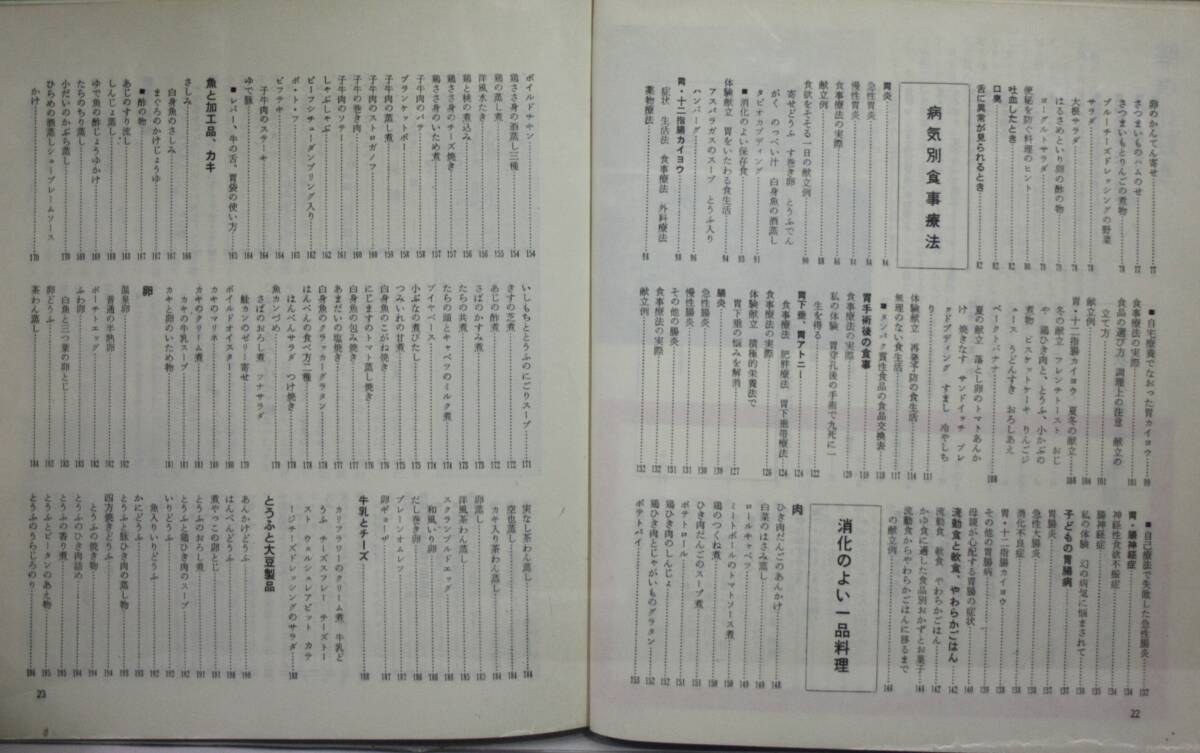 卵のかんてん寄せ 77
さつまいものハムのせ 77
さつまいもとりんごの煮物 78
ブルーチーズドレッシングの野菜
サラダ 78
大根サラダ 78
はるさめといり卵の酢の物 79
ヨーグルトサラダ 79
便秘を防ぐ料理のヒント 80
吐血したとき 82
口臭 82
舌に異常が見られるとき 82
病気別食事療法
胃炎 84
急性胃炎 84
慢性胃炎
食事療法の実際
献立例 88
食欲をそそる一日の献立例 90
寄せどうふ す巻き卵 とうふでん
がく のっぺい汁 白身魚の酒蒸し
タピオカプディング 91
■消化のよい保存食 93
体験献立 胃をいたわる食生活 94
アスパラガスのスープ とうふ入り
ハンバーグ 96
胃・十二指腸カイヨウ 98
症状 生活法 食事療法 外科療法
薬物療法 98
■自宅療養でなおった胃カイヨウ 99
食事療法の実際
食品の選び方 調理上の注意 献立の
立て方 101
献立例 104
胃・十二指腸カイヨウ 夏冬の献立 108
冬の献立 フレンチトースト おじ
や 鶏ひき肉と、とうふ、小かぶの
煮物 ビスケットケーキ りんごジ
ュース うどんすき おろしあえ
ベークドバナナ 108
夏の献立 落とし卵のトマトあんか
け 焼きなす サンドイッチ ブレ
ッドプディング すまし 冷やしち
り 111
体験献立 再発予防の食生活 114
無理のない食生活
■タンパク質性食品の食品交換表 118
胃手術後の食事 119
食事療法の実際 120
私の体験 胃穿孔後の手術で九死に一
生を得る 122
胃下垂、胃アトニー 124
食事療法 肥胖療法 胃下垂帯療法 124
食事療法の実際 126
体験献立 積極的栄養法で
胃下垂の悩みを解消 127
腸炎 130
急性腸炎 130
慢性腸炎 131
その他の腸炎
食事療法の実際
献立例 132
■自己療法で失敗した急性腸炎 132
胃・腸神経症 134
神経性食欲不振症 134
腸神経症 135
私の体験 幻の病気に悩まされて
子どもの胃腸病 137
胃腸炎 137
急性大腸炎
消化不良症 138
胃・十二指腸カイヨウ 138
その他の胃腸病 138
母親が心配する胃腸の症状
流動食と軟食、やわらかごはん 142
流動食 軟食 やわらかごはん 142
かゆ食に適した食品別おかずとお菓子 144
流動食からやわらかごはんに移るまで
の献立例 146
消化のよい一品料理
肉
ひき肉だんごのあんかけ 148
白菜のはさみ蒸し 148
ロールキャベツ 149
ミートボールのトマトソース煮 149
鶏のつくね煮 150
ひき肉だんごのスープ煮 151
鶏ひき肉のしんじょ
ポテトロール
鶏ひき肉とじゃがいものグラタン 152
ポテトパイ 153
22
ボイルドチキン 154
鶏ささ身の酒蒸し三種 154
鶏の蒸し煮
洋風水たき 156
鶏と桃の煮込み 156
鶏ささ身のチーズ焼き 157
鶏ささ身のいため煮
ブランケットポー 158
子牛肉のバター
子牛肉の蒸し煮
子牛肉のストロガノフ 160
子牛の巻き肉
子牛肉のソテー 161
しゃぶしゃぶ 161
ビーフシチューダンプリング入り 162
ポ・ト・フ 162
ビフテキ
子牛肉のステーキ 164
ゆで豚 164
■レバー、牛の舌、胃袋の使い方 165
魚と加工品、カキ
さしみ 166
白身魚のさしみ
まぐろのかけじょうゆ 167
■酢の物 167
あじのすり流し 168
しんじょ蒸し 168
ゆで魚の酢じょうゆかけ 168
たらのちり蒸し 169
小だいのかぶら蒸し
ひらめの酒蒸しシュープレームソース
かけ 170
いしもちととうふのにごりスープ 171
きすの芝煮
あじの酢煮 172
さばのかすみ煮
たらの共煮 173
たらの頭とキャベツのミルク煮 174
ブイヤベース 174
小ぶなの煮びたし
つみいれの甘煮 175
白身魚のこがね焼き 176
にじますのトマト蒸し焼き 176
白身魚の包み焼き 177
あまだいの塩焼き 177
白身魚のクラッカーグラタン
はんぺんの食べ方二種 178
はんぺんサラダ つけ焼き 178
魚カンづめ
さばのおろし煮 ツナサラダ
鮭カンのゼリー寄せ 179
ボイルドオイスター 180
カキのマリネ
カキのクリーム煮 180
カキの牛乳スープ 181
カキと卵のいため物 181
卵
温泉卵 182
普通の半熟卵 182
ポーチドエッグ 182
ふわ卵
白魚と三つ葉の卵とじ 183
卵どうふ
茶わん蒸し 184
実なし茶わん蒸し 184
空也蒸し 184
カキ入り茶わん蒸し
卵蒸し
洋風茶わん蒸し 185
スクランブルドエッグ
和風いり卵
だし巻き卵
プレーンオムレツ 187
卵ギョーザ
牛乳とチーズ
カリフラワーのクリーム煮 牛乳と
うふ チーズスフレー チーズトー
スト ウェルシュレアビット カテ
ージチーズドレッシングのサラダ 188
とうふと大豆製品
あんかけどうふ 190
はんぺんどうふ 190
煮やっこの卵とじ
とうふのおろし煮 191
とうふと鶏ひき肉のスープ
いりどうふ 192
魚入りいりどうふ 192
かにどうふ
とうふと豚ひき肉の蒸し物
四方焼きどうふ
とうふの焼き物 194
とうふのひき肉詰め 194
とうふの香り煮 195
とうふとピータンのあえ物 195
とうふのうらじろのり 196
23